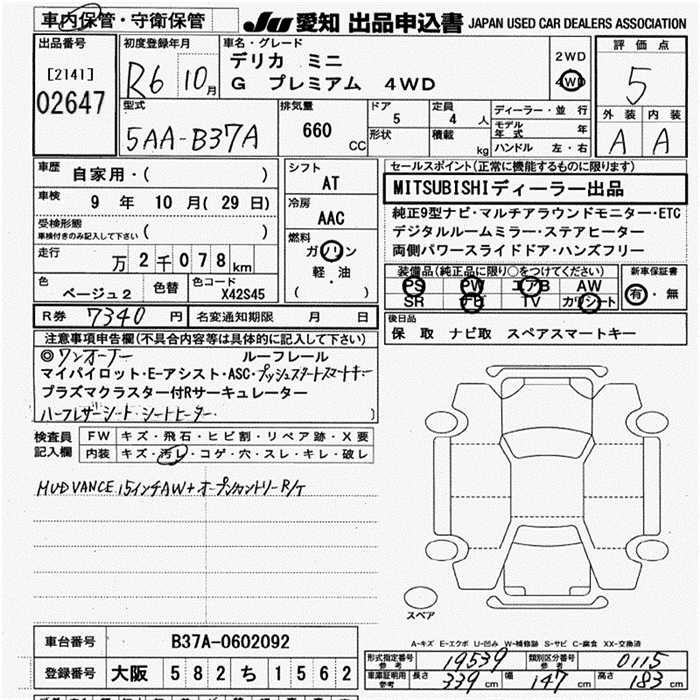 車内保管・守衛保管
JU 愛知 出品申込書 JAPAN USED CAR DEALERS ASSOCIATION
出品番号
[2141]
02647
初度登録年月
R6 10月
車名・グレード
デリカ ミニ
G プレミアム 4WD
2WD
4WD
評価点
5
外装 内装
A A
型式
5AA-B37A
排気量
660 CC
ドア
5
形状
定員
4 人
積載
kg
ディーラー・並行
モデル年式 年
ハンドル 左・右
車歴
自家用・( )
車検
9 年 10 月( 29 日)
受検形態
車検付きのみ記入して下さい ( )
走行
万 2千078km
色
ベージュ2
色替
色コード
X42S45
シフト
AT
冷房
AAC
燃料
ガソリン
軽・油
( )
セールスポイント(正常に機能するものに限ります)
MITSUBISHIディーラー出品
純正9型ナビ・マルチアラウンドモニター・ETC
デジタルルームミラー・ステアヒーター
両側パワースライドドア・ハンズフリー
装備品(純正品に限り○をつけてください)
PS PW エアB AW
SR ナビ TV カワシート
新車保証書
有・無
R券 7340 円 名変通知期限 月 日
後日品
保 取 ナビ取 スペアスマートキー
注意事項申告欄(不具合内容等は具体的に記入して下さい)
◎ワンオーナー ルーフレール
マイパイロット・E-アシスト・ASC・プッシュスタートスマートキー
プラズマクラスター付Rサーキュレーター
ハーフレザーシート・シートヒーター )
検査員記入欄
FW キズ・飛石・ヒビ割・リペア跡・X要
内装 キズ・汚レ・コゲ・穴・スレ・キレ・破レ
MUD VANCE 15インチAW+オープンカントリーR/T
スペア
A-キズ E-エクボ U-凹み W-補修跡 S-サビ C-腐食 XX-交換済
車台番号 B37A-0602092
登録番号 大阪 582 ち 1562
形式指定番号 参考 19539 類別区分番号 参考 0115
車庫証明用 参考 長さ 339 cm 幅 147 cm 高さ 183 cm